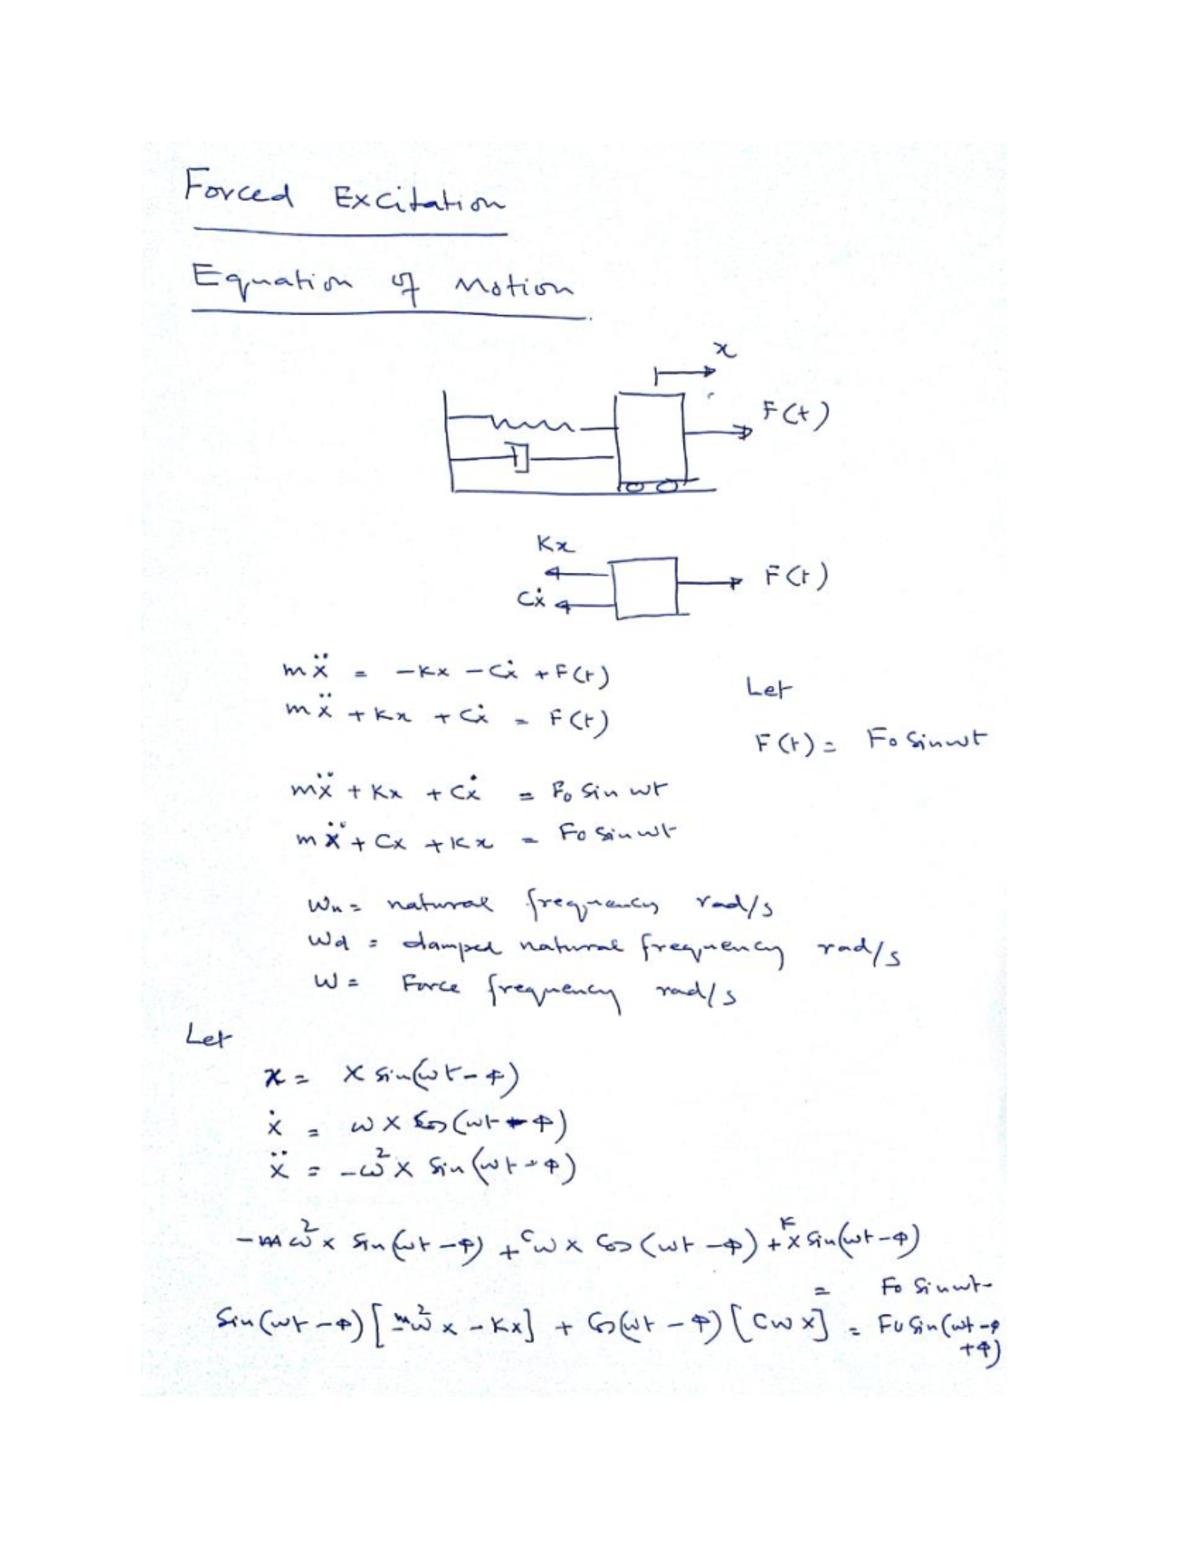 Forced Excitation
Equation of Motion
x
F(t)
Kx
Cẋ
F(t)
mẍ = -Kx - Cẋ + F(t)
mẍ + Kx + Cẋ = F(t)
Let
F(t) = F₀ Sin ωt
mẍ + Kx + Cẋ = F₀ Sin ωt
mẍ + Cx + Kx = F₀ Sin ωt
ωn = natural frequency rad/s
ωd = damped natural frequency rad/s
ω = Force frequency rad/s
Let
x = X Sin(ωt - φ)
ẋ = ωX Cos(ωt - φ)
ẍ = -ω²X Sin(ωt - φ)
-mω²X Sin(ωt - φ) + CωX Cos(ωt - φ) + KX Sin(ωt - φ)
= F₀ Sin ωt
Sin(ωt - φ)[-mω²X - KX] + Cos(ωt - φ)[CωX] = F₀ Sin(ωt - φ
+ φ)